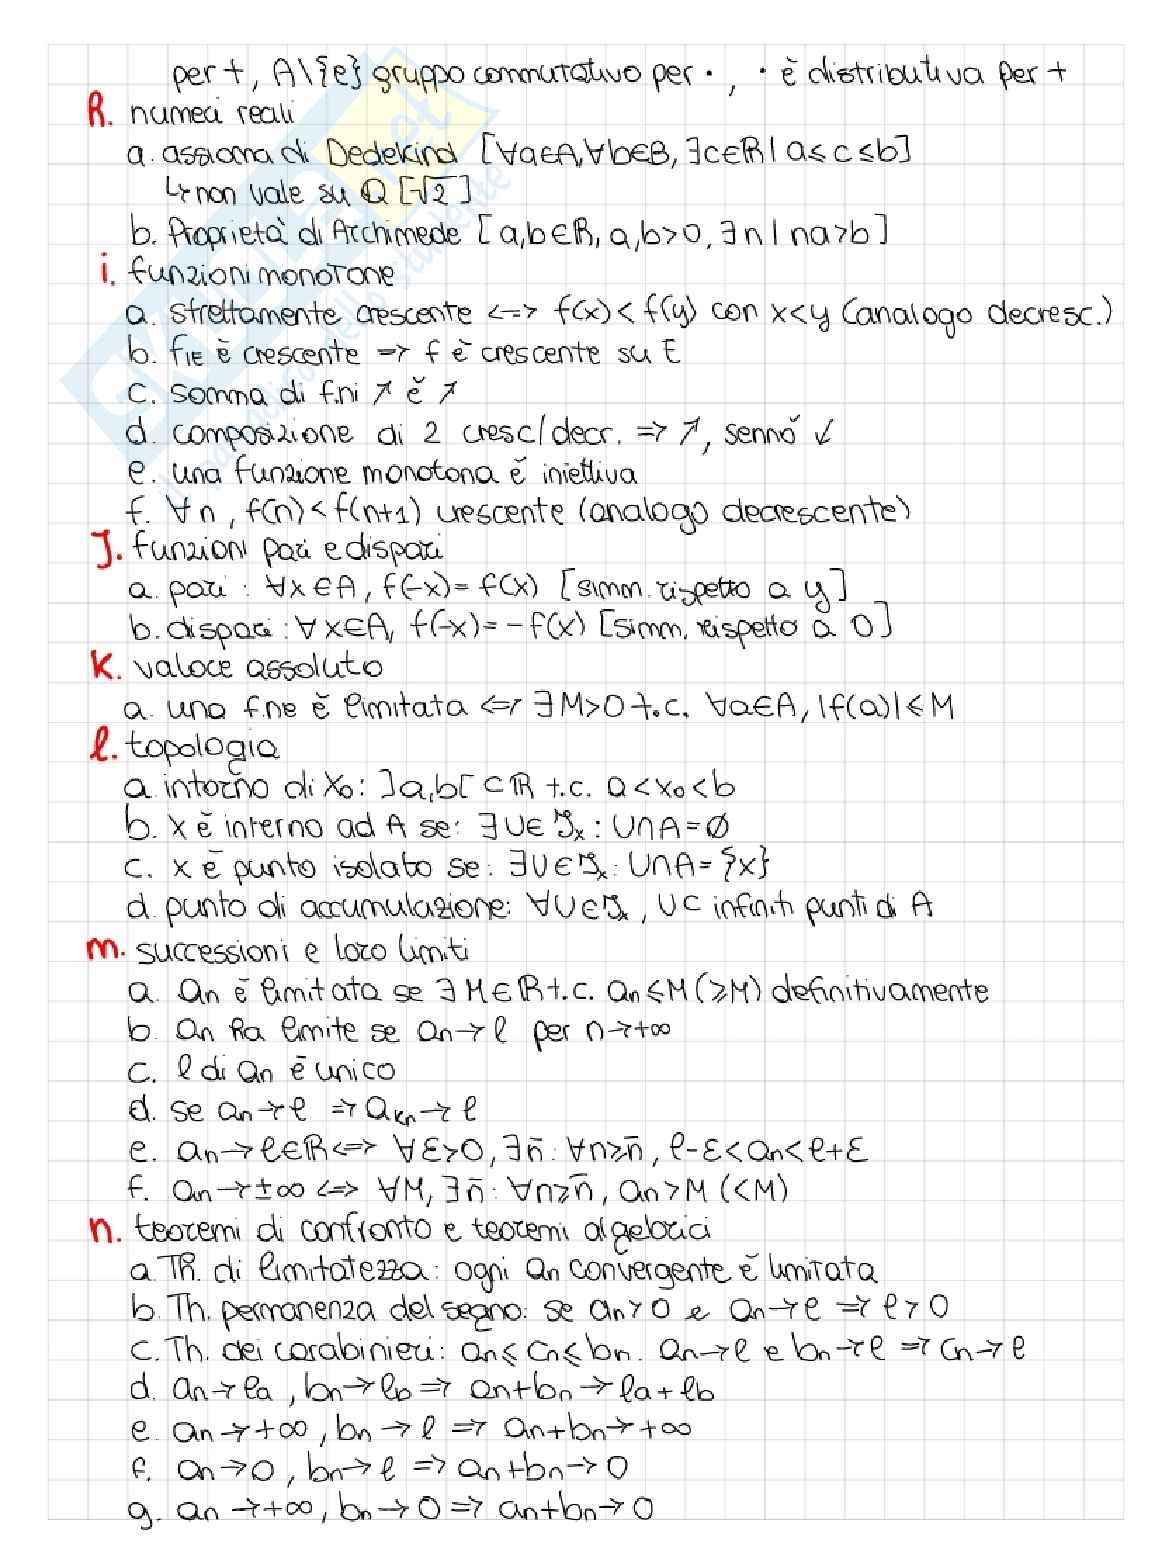 per +, A\{e} gruppo commutativo per ·, · è distributiva per +
h. numeri reali
a. assioma di Dedekind [∀a∈A,∀b∈B, ∃c∈ℝ | a≤c≤b]
↳ non vale su Q [√2]
b. Proprietà di Archimede [a,b∈ℝ, a,b>0, ∃n | na>b]
i. funzioni monotone
a. strettamente crescente <=> f(x)<f(y) con x<y (analogo decresc.)
b. f|E è crescente => f è crescente su E
c. somma di f.ni ↗ è ↗
d. composizione di 2 cresc/decr. => ↗, sennó ↙
e. una funzione monotona è iniettiva
f. ∀n, f(n)<f(n+1) crescente (analogo decrescente)
J. funzioni pari e dispari
a. pari : ∀x∈A, f(-x)=f(x) [simm. rispetto a y]
b. dispari : ∀x∈A, f(-x)=-f(x) [simm. rispetto a O]
K. valore assoluto
a. una f.ne è limitata <=> ∃M>0 t.c. ∀a∈A, |f(a)|≤M
l. topologia
a. intorno di x₀: ]a,b[ ⊂ℝ t.c. a<x₀<b
b. x è interno ad A se: ∃U∈ℑₓ : U∩A=∅
c. x è punto isolato se: ∃U∈ℑₓ: U∩A={x}
d. punto di accumulazione: ∀U∈ℑₓ, U⊂ infiniti punti di A
m. successioni e loro limiti
a. an è limitata se ∃M∈ℝ t.c. an≤M (≥M) definitivamente
b. an ha limite se an→l per n→+∞
c. l di an è unico
d. se an→l => akn→l
e. an→l∈ℝ <=> ∀ε>0, ∃n̄: ∀n≥n̄, l-ε<an<l+ε
f. an→±∞ <=> ∀M, ∃n̄: ∀n≥n̄, an>M (<M)
n. teoremi di confronto e teoremi algebrici
a. Th. di limitatezza: ogni an convergente è limitata
b. Th. permanenza del segno: se an>0 e an→l => l>0
c. Th. dei carabinieri: an≤cn≤bn. an→l e bn→l => cn→l
d. an→la, bn→lb => an+bn→la+lb
e. an→+∞, bn→l => an+bn→+∞
f. an→0, bn→l => an+bn→0
g. an→+∞, bn→0 => an+bn→0